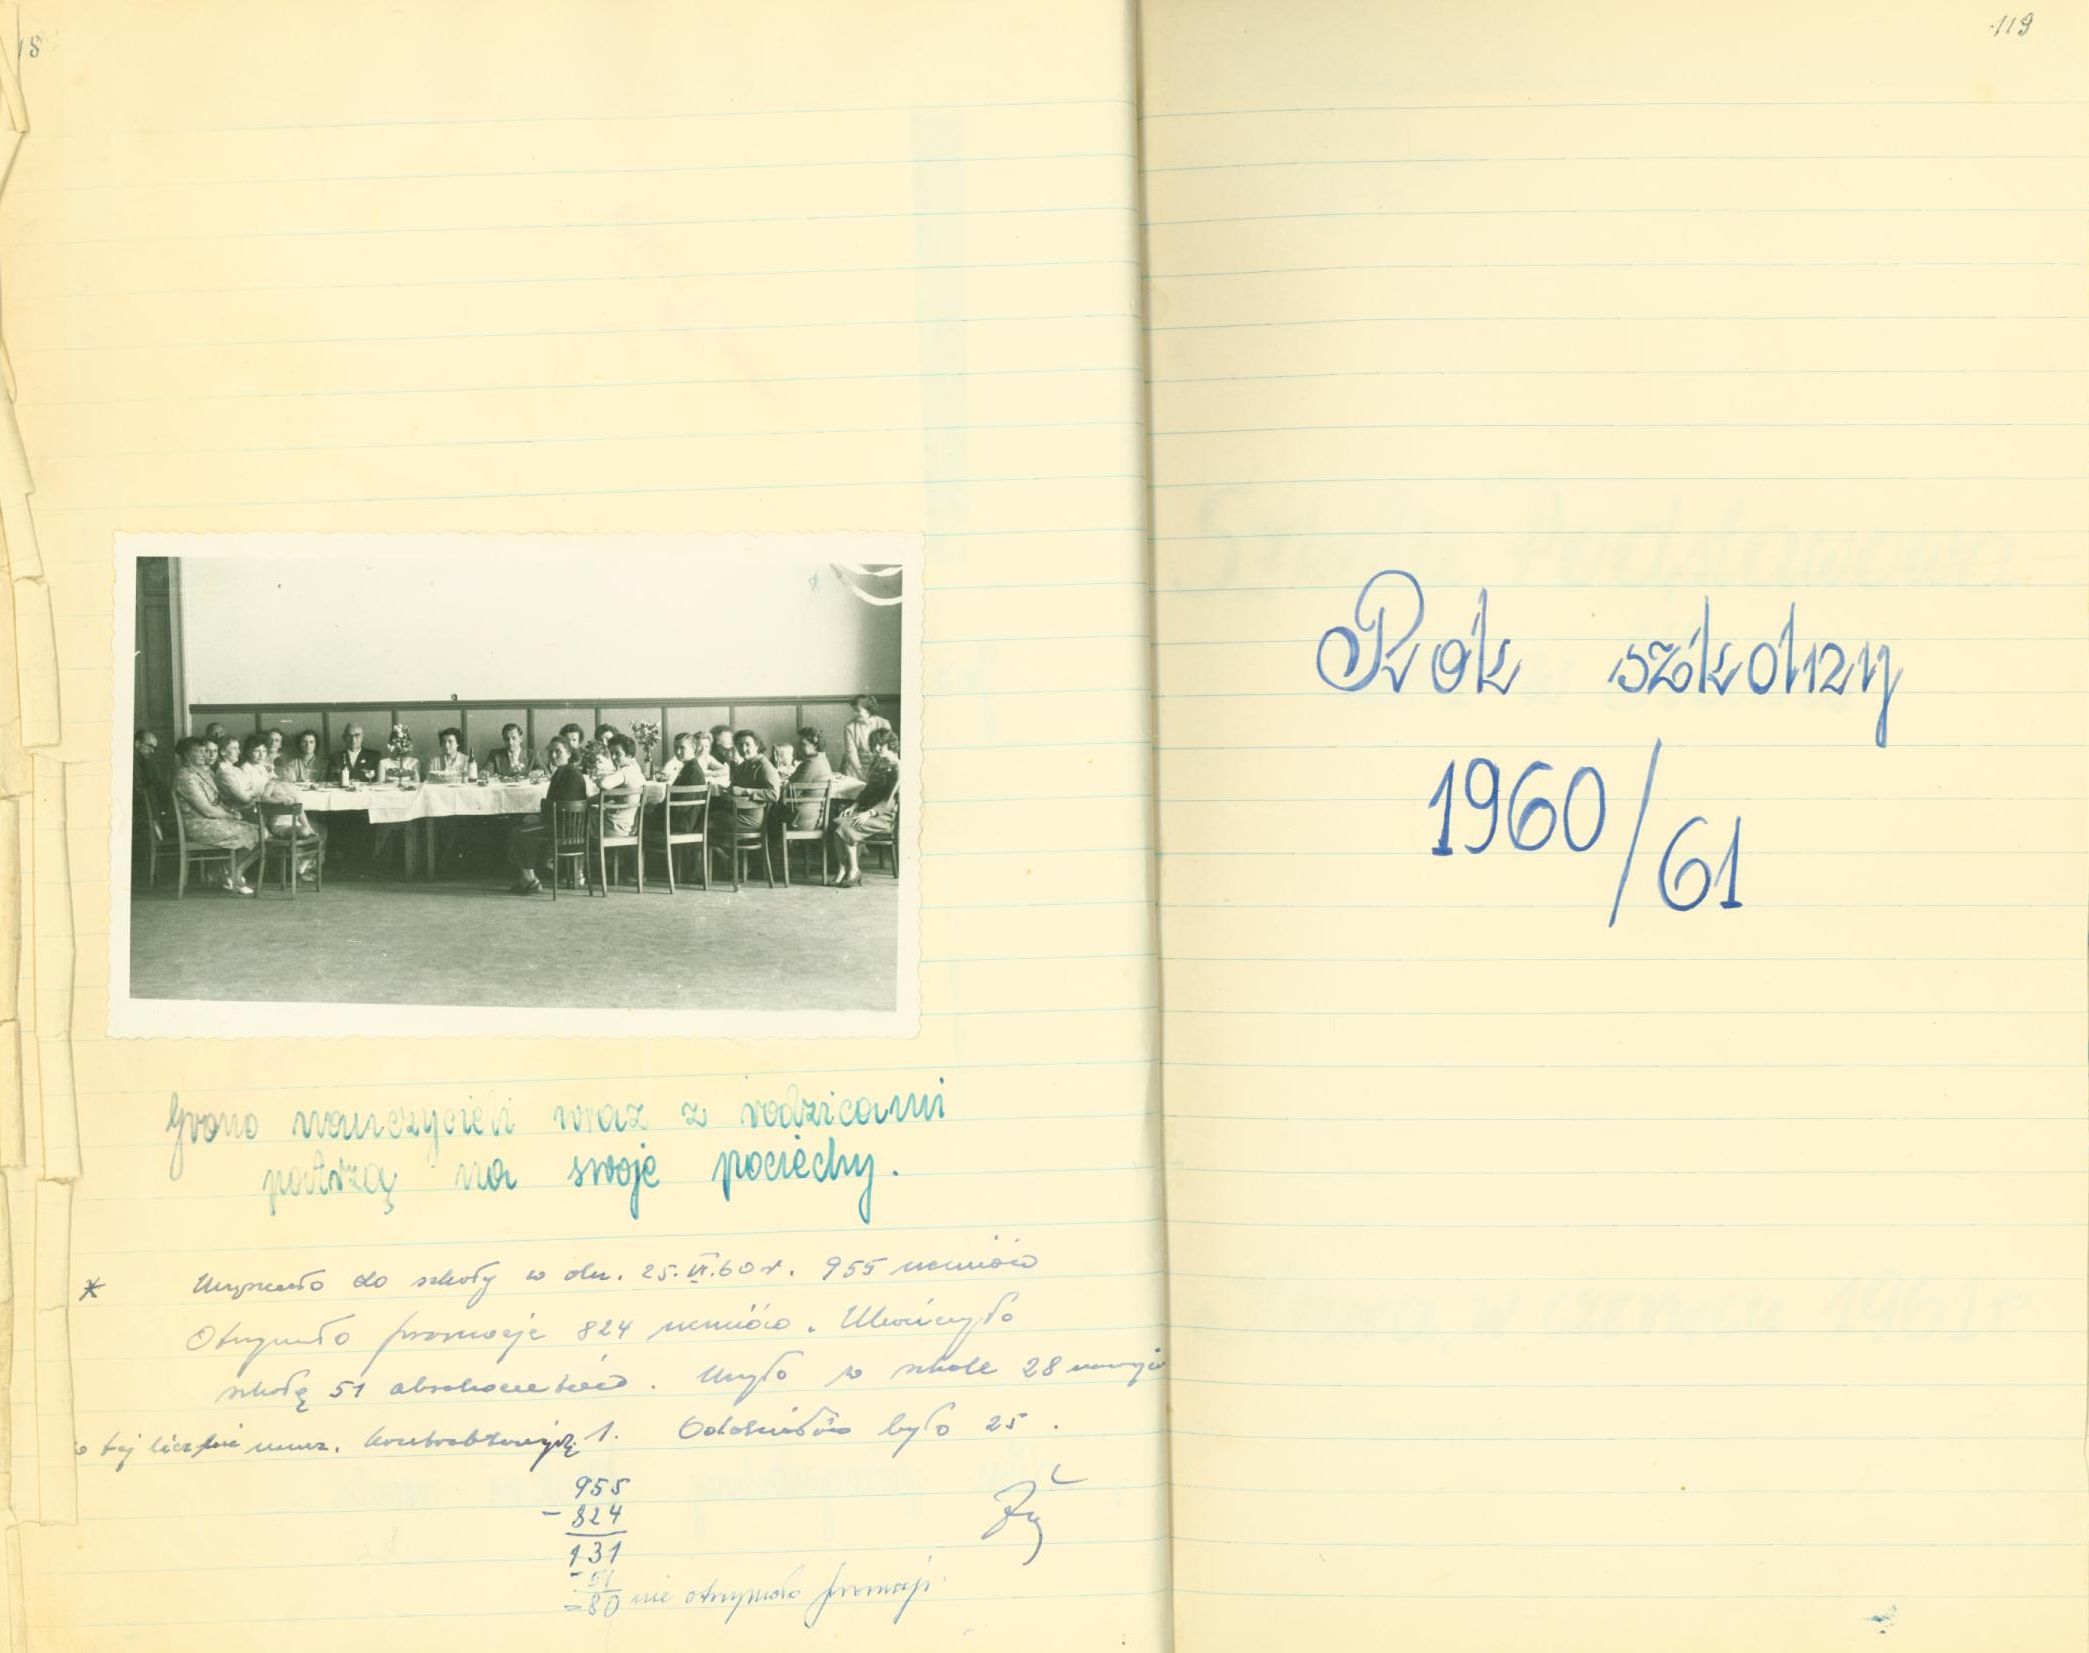 18
Grono nauczycieli wraz z rodzicami
patrzą na swoje pociechy.
* Uczęszczało do szkoły w dn. 25.VI.60 r. 955 uczniów
Otrzymało promocję 824 uczniów. Ukończyło
szkołę 51 absolwentów. Uczyło w szkole 28 naucz.
w tej liczbie naucz. kontraktowych 1. Oddziałów było 25.
955
- 824
131
- 51
= 80 nie otrzymało promocji.
119
Rok szkolny
1960/61